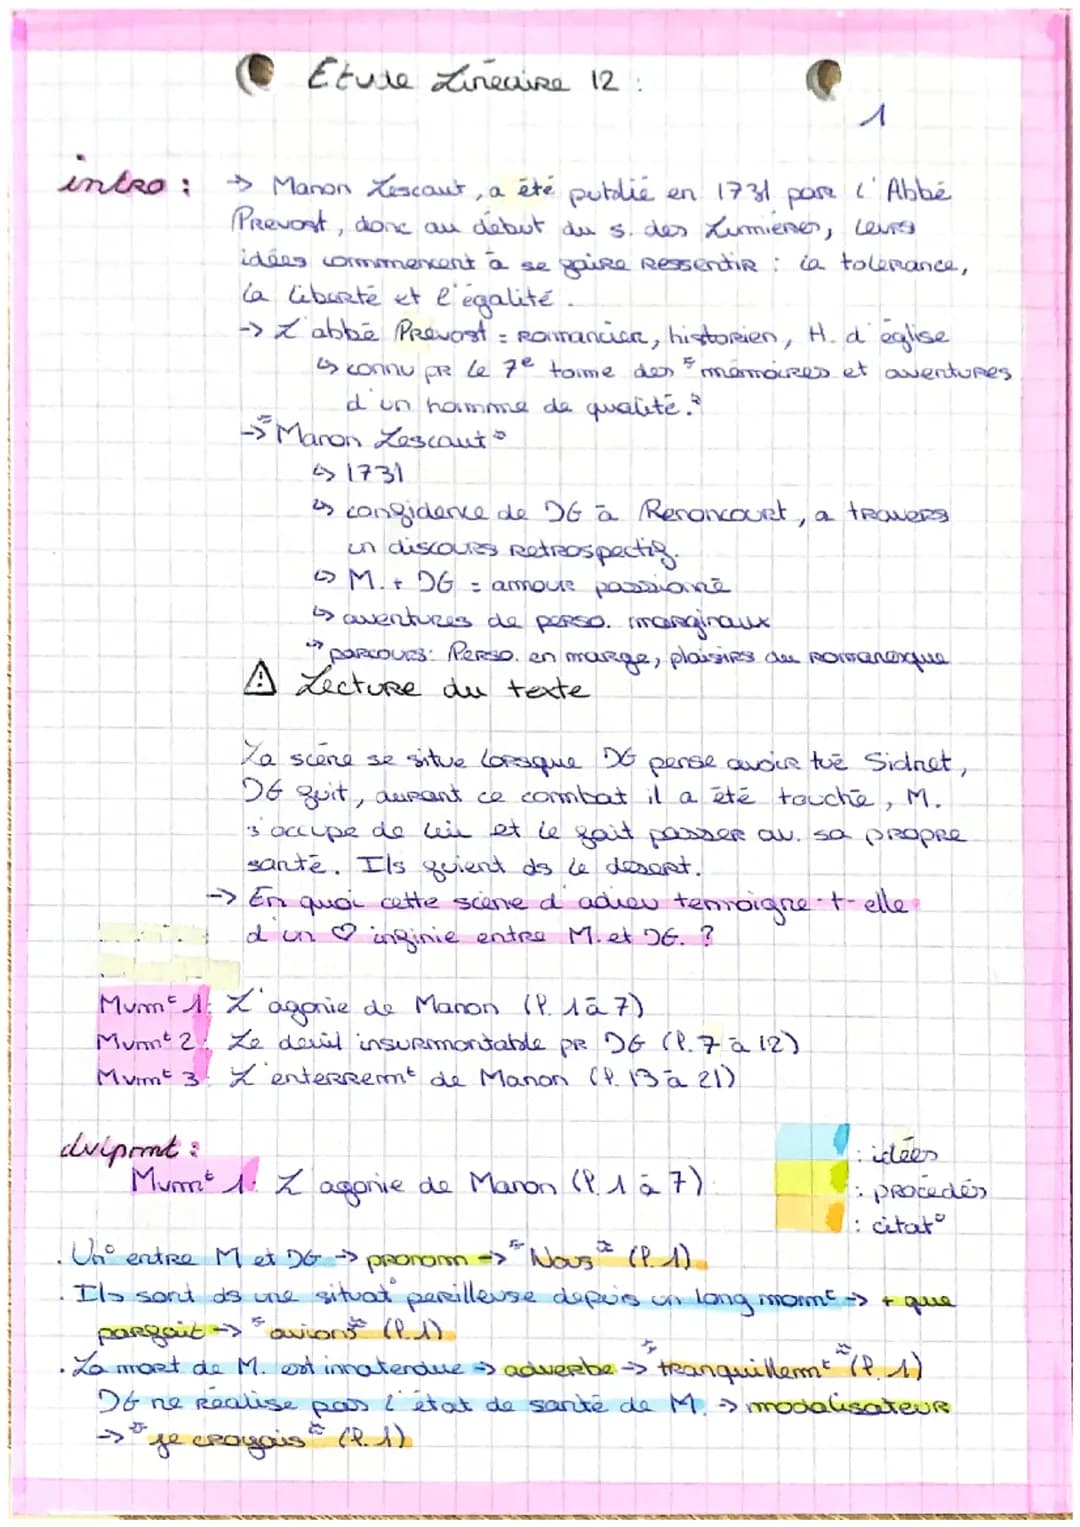 Etude Linéaire 12 :
1
intro : → Manon Lescaut, a été publié en 1731 par l'Abbé
Prevost, donc au début du s. des Lumières, leurs
idées commencent à se faire ressentir : la tolérance,
la liberté et l'égalité.
→ L'abbé Prevost = romancier, historien, H. d'église
↳ connu pr le 7e tome des "mémoires et aventures
d'un homme de qualité."
→ "Manon Lescaut"
↳ 1731
↳ confidence de DG à Renoncourt, a travers
un discours retrospectif.
↳ M. + DG = amour passionné
↳ aventures de perso. marginaux
↳ parcours: Perso. en marge, plaisirs du romanesque
⚠ Lecture du texte
La scène se situe lorsque DG pense avoir tué Sidnet,
DG fuit, durant ce combat il a été touché, M.
s'occupe de lui et le fait passer av. sa propre
santé. Ils fuient ds le désert.
→ En quoi cette scène d'adieu temoigne-t-elle
d'un ♡ infinie entre M. et DG. ?
Mvmt 1: L'agonie de Manon (l. 1 à 7)
Mvmt 2: Le deuil insurmontable pr DG (l. 7 à 12)
Mvmt 3: L'enterremt de Manon (l. 13 à 21)
dvlpmt :
: idées
Mvmt 1: L'agonie de Manon (l. 1 à 7)
: procédés
: citat°
. Un° entre M et DG → pronom → "Nous" (l. 1).
. Ils sont ds une situat° perilleuse depuis un long momt → + que
parfait → "avions" (l. 1).
. La mort de M. est innatendue → adverbe → "tranquillemt" (l. 1)
DG ne réalise pas l'état de santé de M. → modalisateur
→ "je croyais" (l. 1)